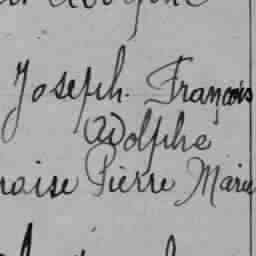 Joseph. François
Adolphe
naise Pierre Marie